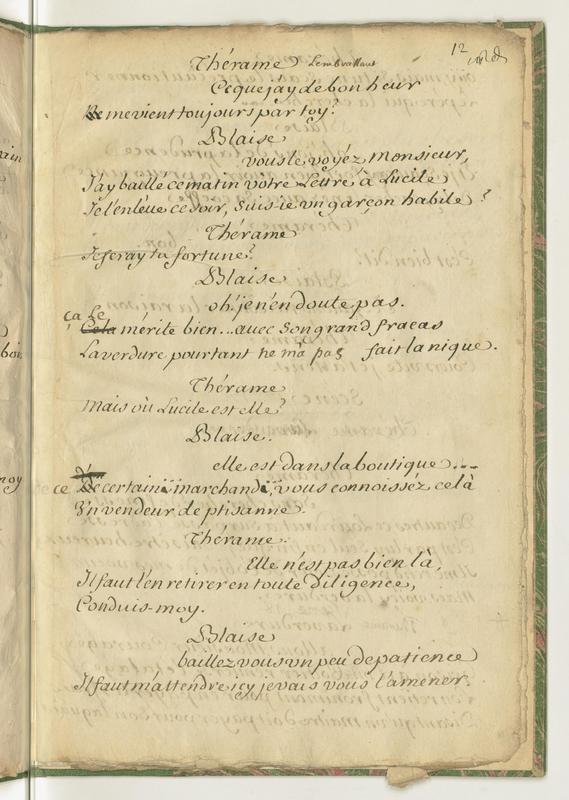 12
Thérame L'embrassant
Ce que j'ay de bonheur
me vient toujours par toy?
Blaise
vous le voyéz Monsieur,
J'ay baillé ce matin vôtre Lettre à Lucile
Je l'enléue ce soir, suis-ie vn garçon habile?
Thérame
Je feray ta fortune?
Blaise
oh! je n'en doute pas.
ça Le
Cela mérite bien... avec son grand fracas
Laverdure pourtant ne m'a pas fait la nique.
Thérame
Mais où Lucile est elle?
Blaise.
elle est dans la boutique....
ce certain marchand, vous connoissèz celà
Vn vendeur de ptisanne.
Thérame.
Elle n'est pas bien là,
Il faut l'en retirer en toute diligence,
Conduis-moy.
Blaise
baillez vous vn peu de patience
Il faut m'attendre icy je vais vous l'amener.